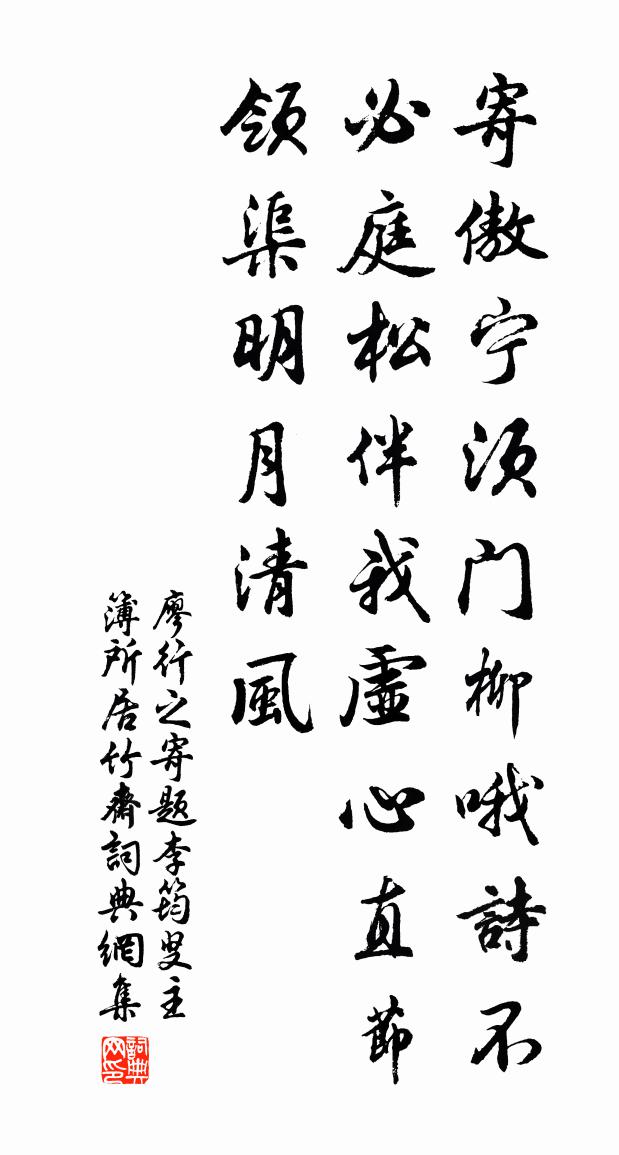 寄傲宁须门柳哦詩不
必庭松伴我虛心直節
領渠明月清風
廖行之寄题李筠叟主
簿所居竹齋詞典網集
詞典网印